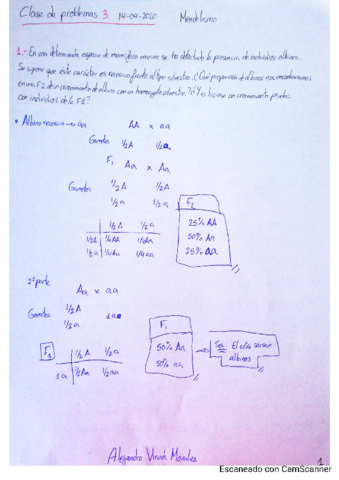 Clase de problemas 3. 14-04-2020 Mendelismo
1.- En una determinada especie de mamífero marino se ha detectado la presencia de individuos albinos.
Se supone que este carácter es recesivo frente al tipo silvestre. ¿Qué proporción de albinos nos encontraríamos
en una F2 de un cruzamiento de albino con un homocigoto silvestre? ¿Y si hacemos un cruzamiento prueba
con individuos de la F1?
• Albino recesivo → aa AA x aa
Gametos 1/2 A 1/2 a
F1 Aa x Aa
Gametos 1/2 A 1/2 A
1/2 a 1/2 a
F2
25% AA
50% Aa
25% aa
1/2 A 1/2 a
1/2 A 1/4 AA 1/4 Aa
1/2 a 1/4 Aa 1/4 aa
2ª parte
Aa x aa
Gametos 1/2 A
1/2 a
1 a
F1
50% Aa
50% aa
Sol: El 50% serían
albinos
1/2 A 1/2 a
1 a 1/2 Aa 1/2 aa
Alejandro Morales
1
Escaneado con CamScanner